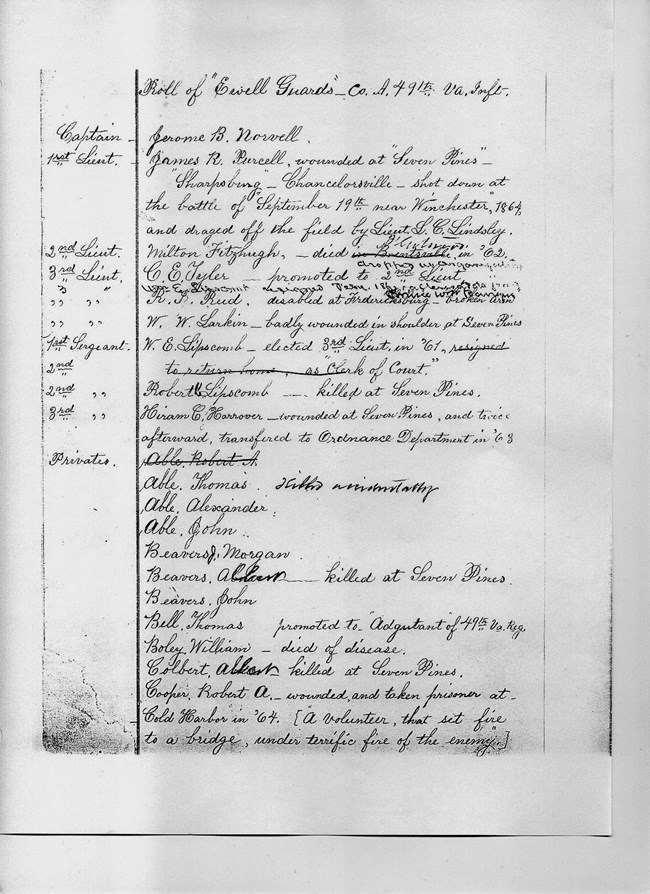 Roll of "Ewell Guards" - Co. A. 49th Va. Inft.
Captain - Jerome B. Norvell.
1st Lieut. - James R. Purcell, wounded at "Seven Pines" -
"Sharpsburg" - Chancelorsville - shot down at
the battle of "September 19th near Winchester," 1864,
and draged off the field by Lieut. S. C. Lindsley.
2nd Lieut. Milton Fitzhugh, - died in Brentsville in '62.
3rd Lieut. C. E. Tyler - promoted to 2nd Lieut
" " Wm E. Lipscomb resigned
" " R. P. Reid, disabled at Fredericksburg - broken
" " W. W. Larkin - badly wounded in shoulder at Seven Pines
1st Sergeant. W. E. Lipscomb - elected 3rd Lieut, in '61, resigned
2nd to return home, as "Clerk of Court."
2nd " Robert Lipscomb - killed at Seven Pines.
3rd " Hiram C. Harrover - wounded at Seven Pines, and twice
afterward, transfered to Ordnance Department in '63
Privates. Able, Robert A.
Able, Thomas. Killed accidentally
Able, Alexander.
Able, John.
Beavers J. Morgan.
Beavers, Albert - killed at Seven Pines.
Beavers, John
Bell, Thomas promoted to "Adgutant of 49th Va. Reg.
Boley, William - died of disease.
Colbert, Albert killed at Seven Pines.
Cooper, Robert A. - wounded, and taken prisoner at -
Cold Harbor in '64. [A volunteer, that set fire
to a bridge, under terrific fire of the enemy."]